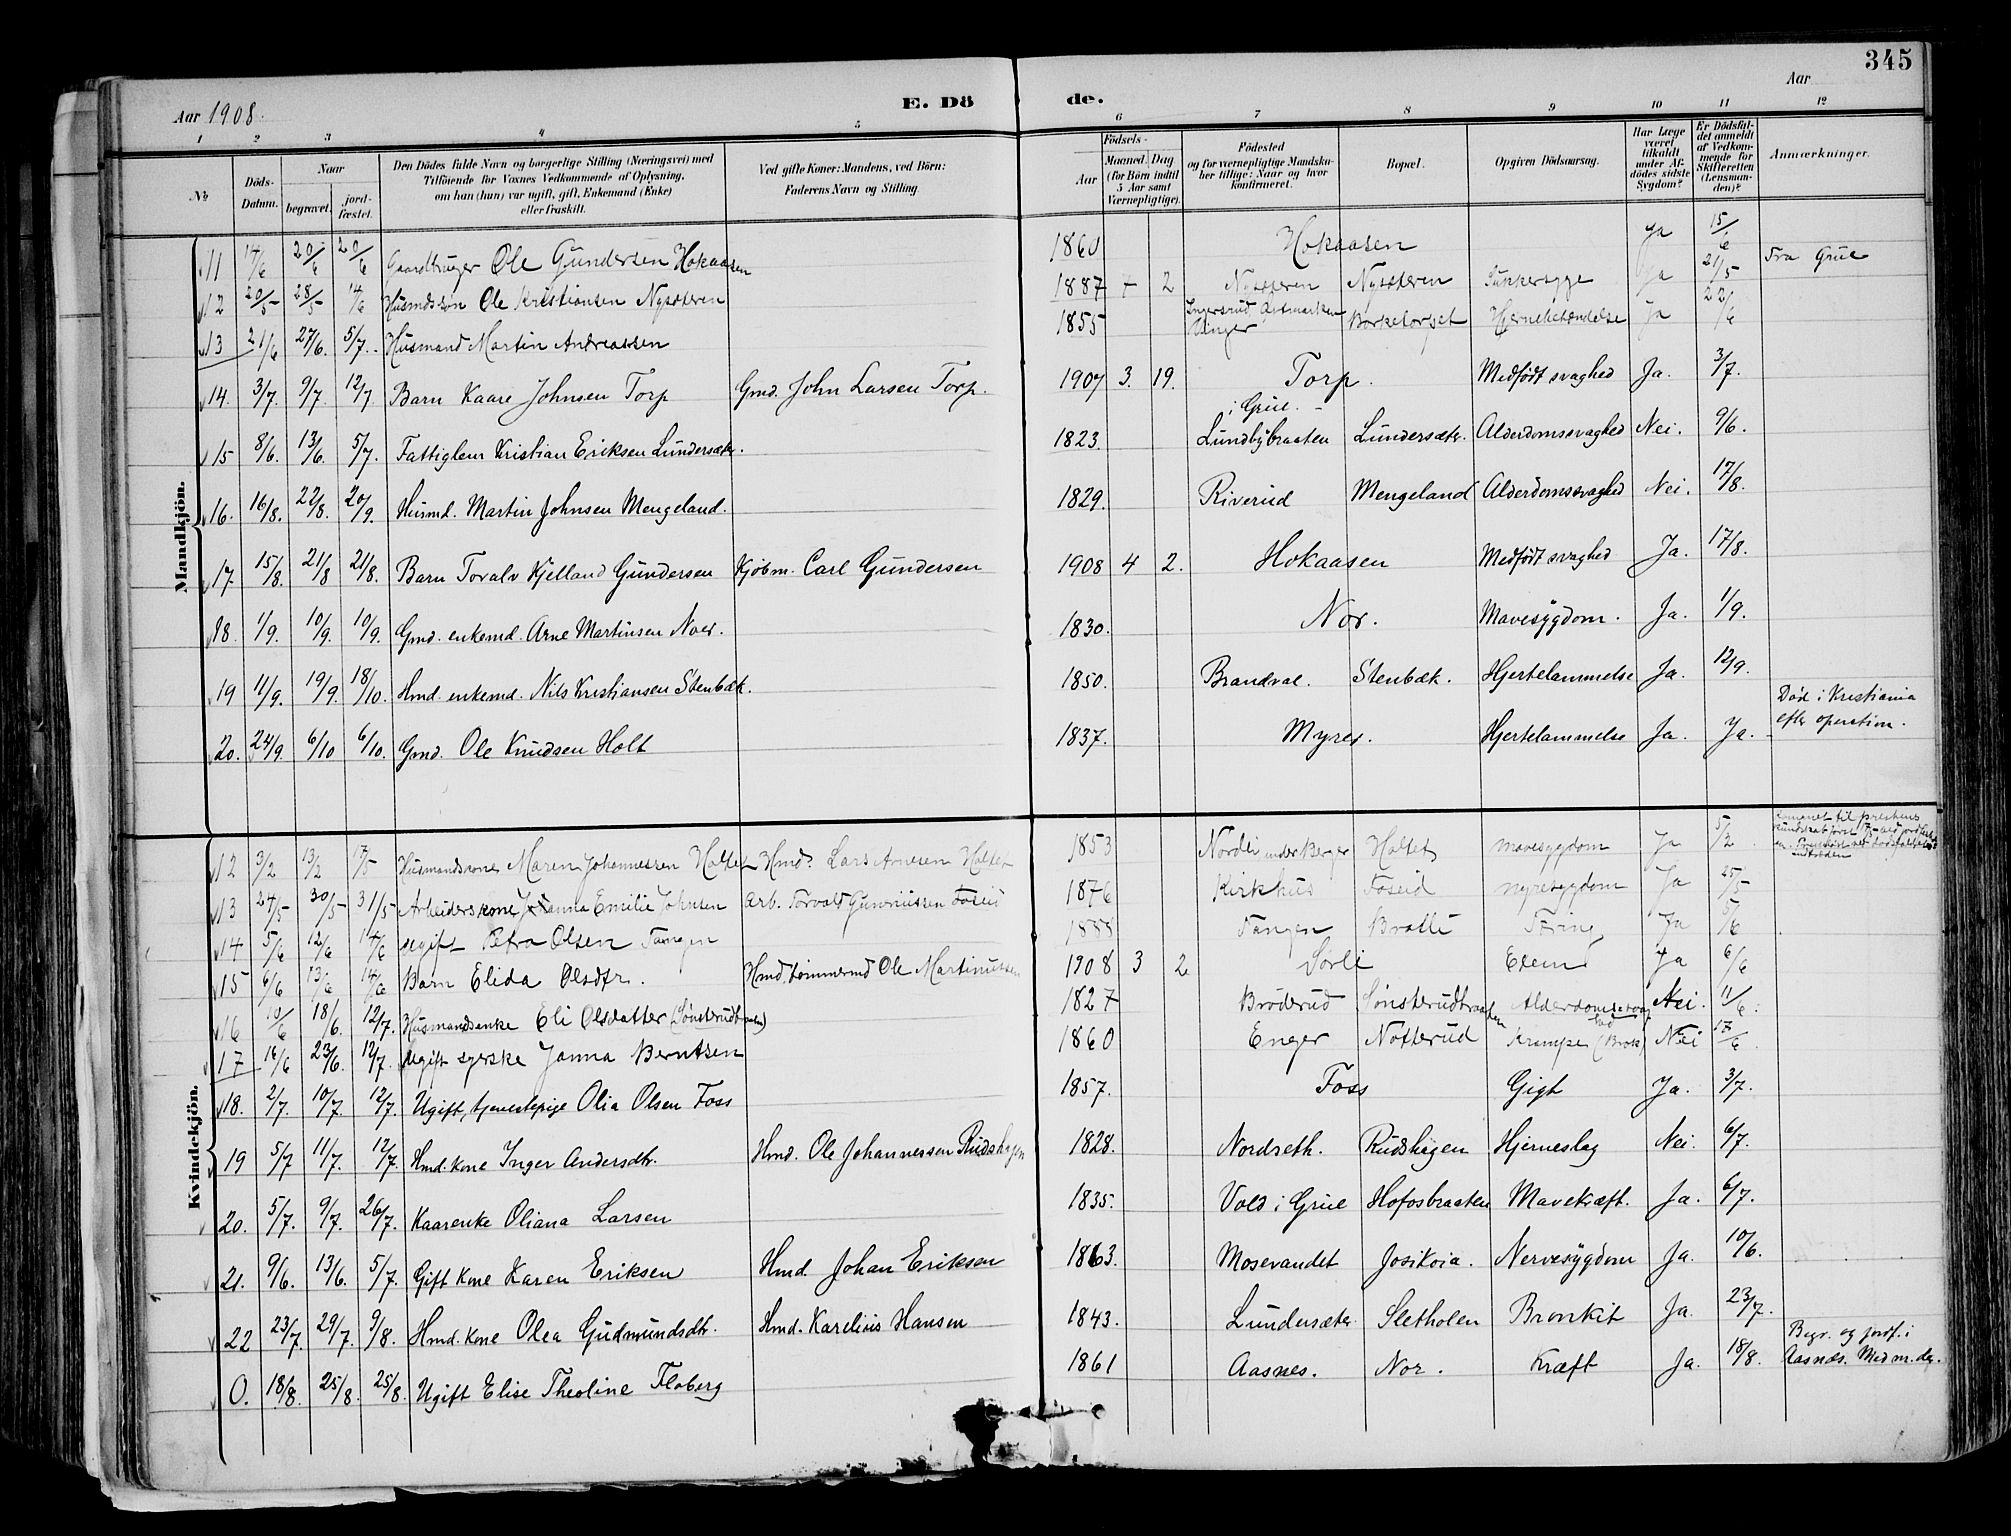 345
Aar 1908.
E. Döde.
Aar
1 2 3 4 5 6 7 8 9 10 11 12
No
Döds-Datum.
Naar
begravet.
jord-fæstet.
Den Dödes fulde Navn og borgerlige Stilling (Næringsvei) med
Tilföiende för Voxnes Vedkommende af Oplysning,
om han (hun) var ugift, gift, Enkemand (Enke)
eller fraskilt.
Ved gifte Koner: Mandens, ved Börn:
Faderens Navn og Stilling.
Födsels-
Aar
Maaned. Dag
(for Börn indtil
5 Aar samt
Værnepligtige).
Födested
og for værnepligtige Mandska-
ber tillige: Naar og hvor
konfirmeret.
Bopæl.
Opgiven Dödsaarsag.
Har Læge
været
tilkaldt
under Af-
dödes sidste
Sygdom?
Er Dödsfal-
det anmeldt
af Vedkom-
mende for
Skifteretten
(Lensman-
den)?
Anmærkninger.
Mandkjön.
11 14/6 20/6 20/6 Gaardbruger Ole Gundersen Hokaasen 1860 Hokaasen Ja 15/6
12 20/5 28/5 14/6 Husmdssön Ole Kristiansen Nysæteren 1887 7 2 Nysæteren Nysæteren Sukkersyge Ja 21/5 Fra Grue
13 21/6 27/6. 5/7. Husmand Martin Andreassen 1855 Vinger Hjernebetændelse Ja 22/6
14. 3/7. 9/7. 12/7 Barn Kaare Johnsen Torp Gmd. John Larsen Torp. 1907 3. 19. Torp. Medfödt svaghed Ja. 3/7.
15 8/6. 13/6. 5/7. Fattiglem Kristian Eriksen Lundersæter. 1823. i Grue. Lundbybraaten Lundersæter. Alderdomssvaghed Nei. 9/6.
16. 16/8. 22/8. 20/9. Husmd. Martin Johnsen Mengeland. 1829. Riverud Mengeland Alderdomssvaghed Nei. 17/8.
17. 15/8. 21/8 21/8. Barn Toralv Kjelland Gundersen Kjöbm. Carl Gundersen 1908 4 2. Hokaasen Medfödt svaghed Ja. 17/8.
18. 1/9. 10/9. 10/9. Gmd. enkemd. Arne Martinsen Noer. 1830. Nor. Mavesygdom. Ja. 1/9.
19 11/9. 19/9. 18/10. Hmd. enkemd. Nils Kristiansen Stenbæk. 1850. Brandval. Stenbæk. Hjertelammelse Ja. 12/9.
20. 24/9. 6/10 6/10. Gmd. Ole Knudsen Holt 1837. Myrer. Hjertelammelse Ja. Ja. Död i Kristiania
efter operation.
Kvindekjön.
12 3/2 13/2 17/5 Husmandskone Maren Johannessen Holtet Hmd. Lars Arnesen Holtet 1853 Nordli under Berger Holtet mavesygdom Ja 5/2
13 24/5 30/5 31/5 Arbeiderskone Johanna Emilie Johnsen Arb. Torvald Guneriussen Foseid 1876 Kirkhus Foseid nyresygdom Ja 25/5
14 5/6 12/6 14/6 ugift Petra Olsen Tangen 1888 Tangen Bratli Tæring Ja 5/6
15 6/6 13/6 14/6 Barn Elida Olsdtr. Hmd. tömmermd Ole Martinussen 1908 3 2 Sörli Exem Ja 6/6
16 10/6 18/6. 12/7. Husmandsenke Eli Olsdatter Sönsterudbraaten 1827 Bröderud Sönsterudbraaten Alderdomssvaghed Nei. 11/6.
17 16/6 23/6. 12/7. Ugift syerske Janna Berntsen 1860 Enger Notterud Krampe (Brok) Nei 17/6
18. 2/7. 10/7. 12/7. Ugift, tjenestepige Olia Olsen Foss 1857. Foss Gigt Ja. 3/7.
19 5/7 11/7. 12/7. Hmd. kone Inger Andersdtr. Hmd. Ole Johannessen Rudshagen 1828. Nordseth. Rudshagen Hjerneslag Nei. 6/7.
20. 5/7. 9/7. 26/7. Kaarenke Oliana Larsen 1835. Vold i Grue Hofosbraaten Mavekræft. Ja. 6/7.
21. 9/6. 13/6. 5/7. Gift kone Karen Eriksen Hmd. Johan Eriksen 1863. Mosevandet Josikoia. Nervesygdom Ja. 10/6.
22 23/7. 29/7. 9/8. Hmd. kone Olea Gudmundsdtr. Hmd. Karelius Hansen 1843. Lundersæter Sletholen Bronkit Ja. 23/7.
0. 18/8. 25/8. 25/8. Ugift Elise Theoline Floberg 1861 Aasnes. Nor. Kræft Ja. 18/8. Begr. og jordf. i
Aasnæs. Medm. deg.